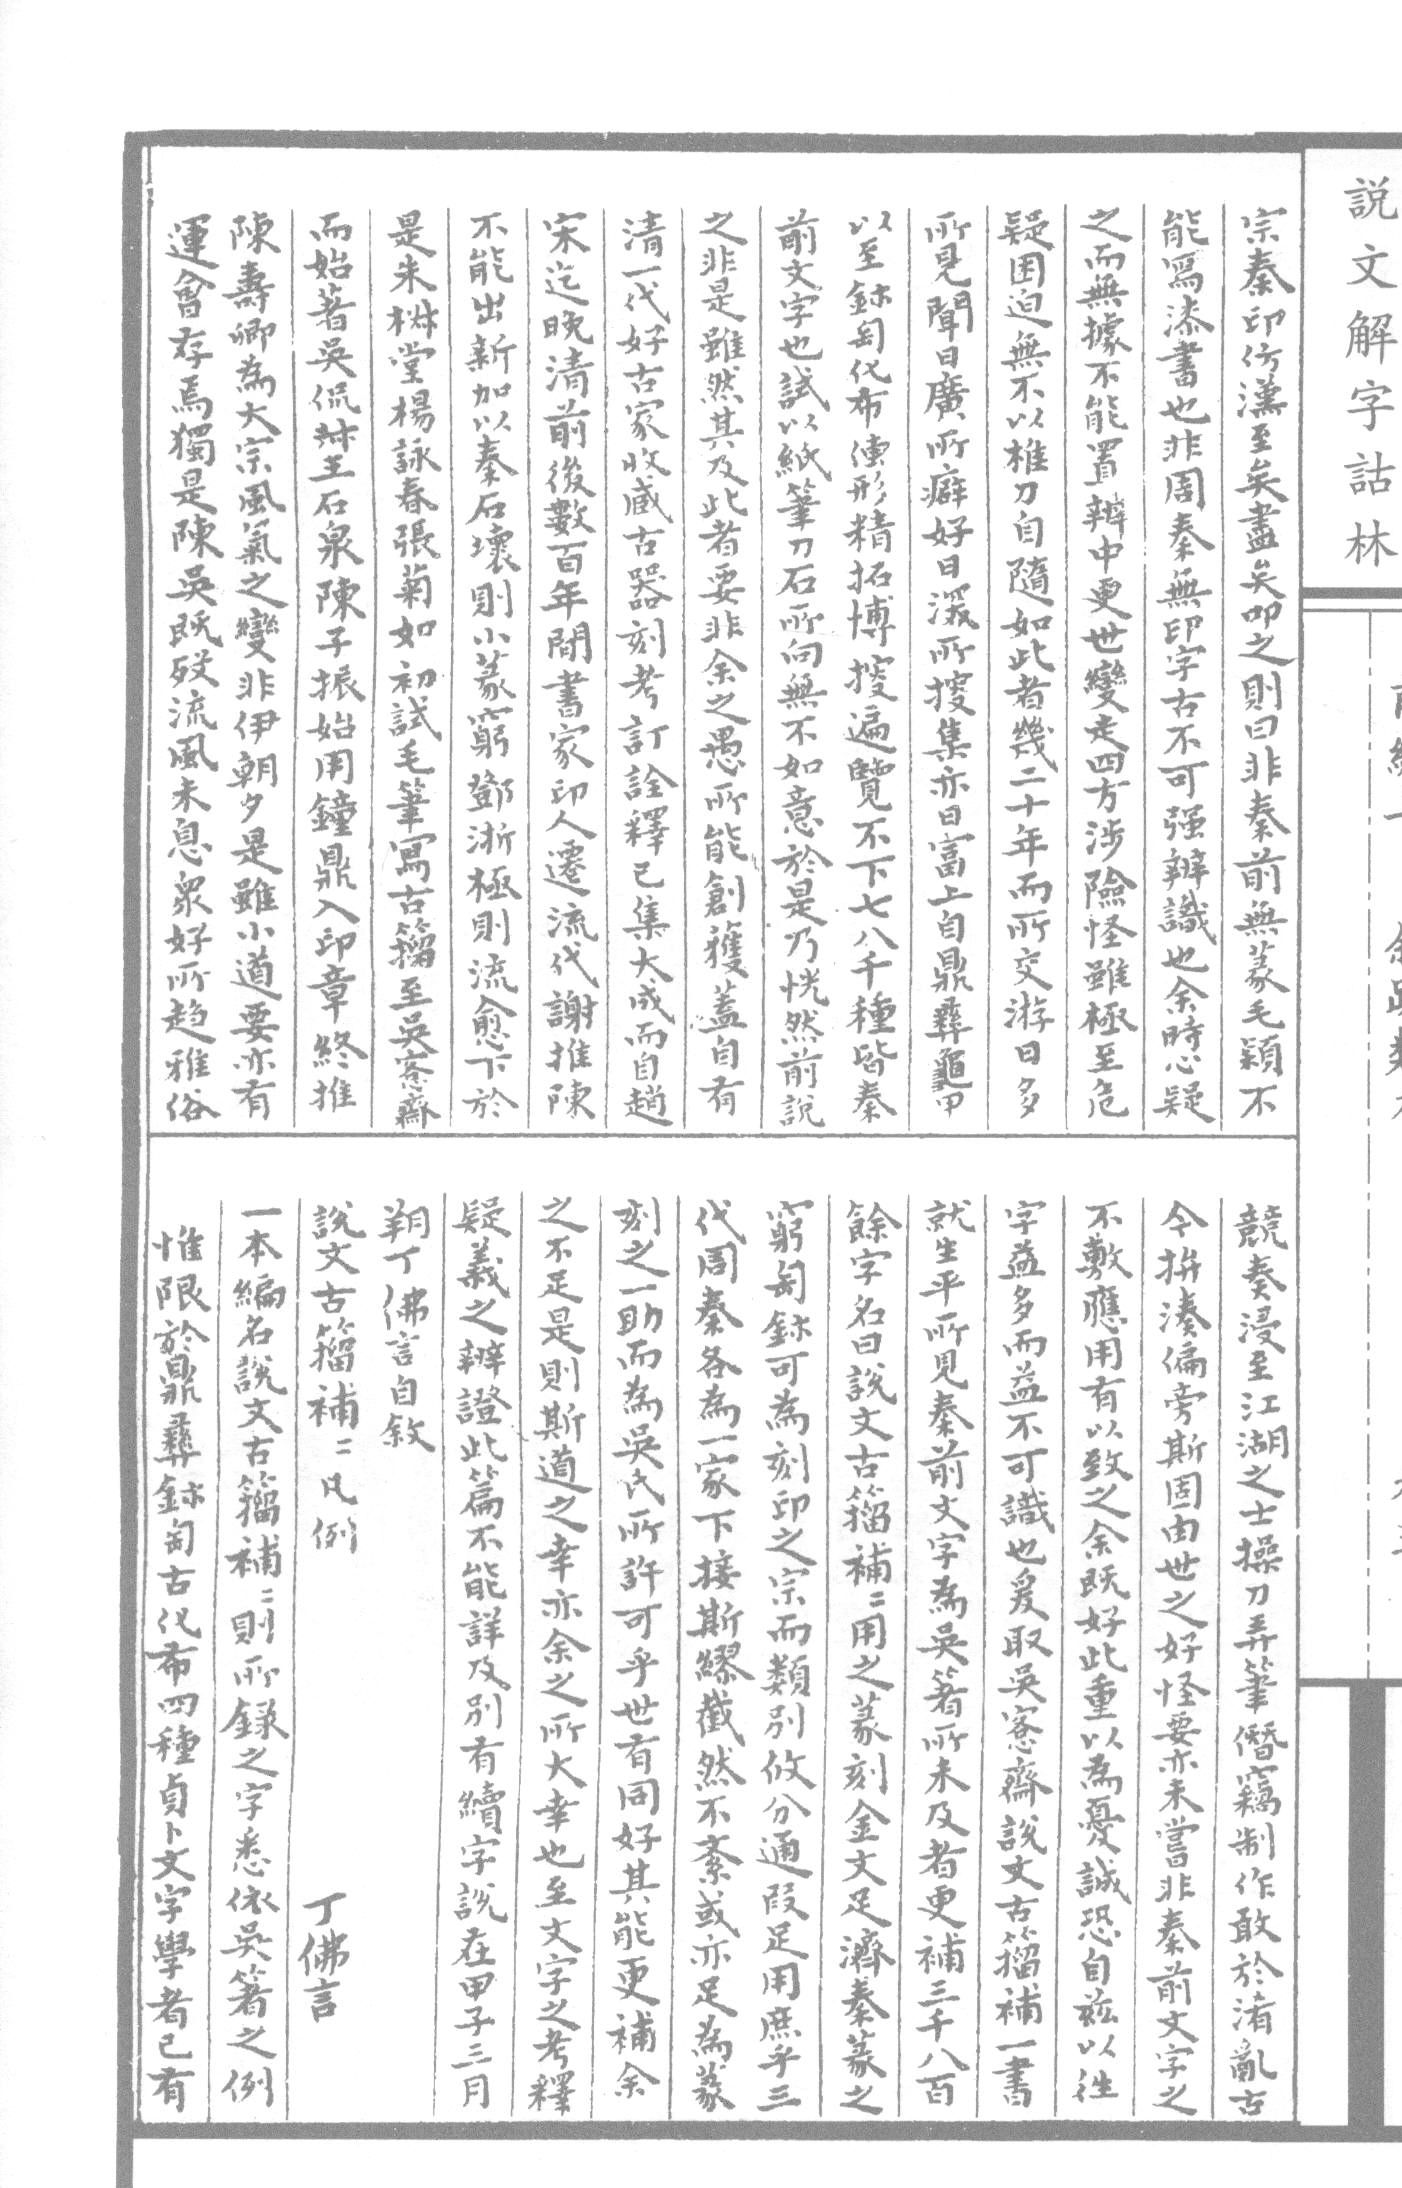 説文解字詁林
宗秦印仿漢至矣盡矣叩之則曰非秦前無篆毛穎不
能寫漆書也非周秦無印字古不可强辨識也余時心疑
之而無據不能置辨中更世變走四方涉險怪雖極至危
疑困迫無不以椎刀自隨如此者幾二十年而所交游日多
所見聞日廣所癖好日深所搜集亦日富上自鼎彝龜甲
以至鉨匋化布傳形精拓博搜遍覽不下七八千種皆秦
前文字也試以紙筆刀石所向無不如意於是乃恍然前說
之非是雖然其及此者要非余之愚所能創獲蓋自有
清一代好古家收藏古器刻考訂詮釋已集大成而自趙
宋迄晚清前後數百年間書家印人遷流代謝推陳
不能出新加以秦石壞則小篆窮鄧浙極則流愈下於
是朱椒堂楊詠春張菊如初試毛筆寫古籀至吳愙齋
而始著吳侃叔王石泉陳子振始用鐘鼎入印章終推
陳壽卿為大宗風氣之變非伊朝夕是雖小道要亦有
運會存焉獨是陳吳既歿流風未息衆好所趨雅俗
競奏浸至江湖之士操刀弄筆僭竊制作敢於淆亂古
今拚湊偏旁斯固由世之好怪要亦未嘗非秦前文字之
不敷應用有以致之余既好此重以為憂誠恐自茲以往
字益多而益不可識也爰取吳愙齋說文古籀補一書
就生平所見秦前文字為吳著所未及者更補三千八百
餘字名曰說文古籀補二用之篆刻金文足濟秦篆之
窮匋鉨可為刻印之宗而類別攸分通叚足用庶乎三
代周秦各為一家下接斯繆截然不紊或亦足為篆
刻之一助而為吳氏所許可乎世有同好其能更補余
之不足是則斯道之幸亦余之所大幸也至文字之考釋
疑義之辨證此篇不能詳及別有續字說在甲子三月
朔丁佛言自敘
說文古籀補二凡例
丁佛言
一本編名說文古籀補二則所錄之字悉依吳著之例
惟限於鼎彝鉨匋古化布四種貞卜文字學者已有